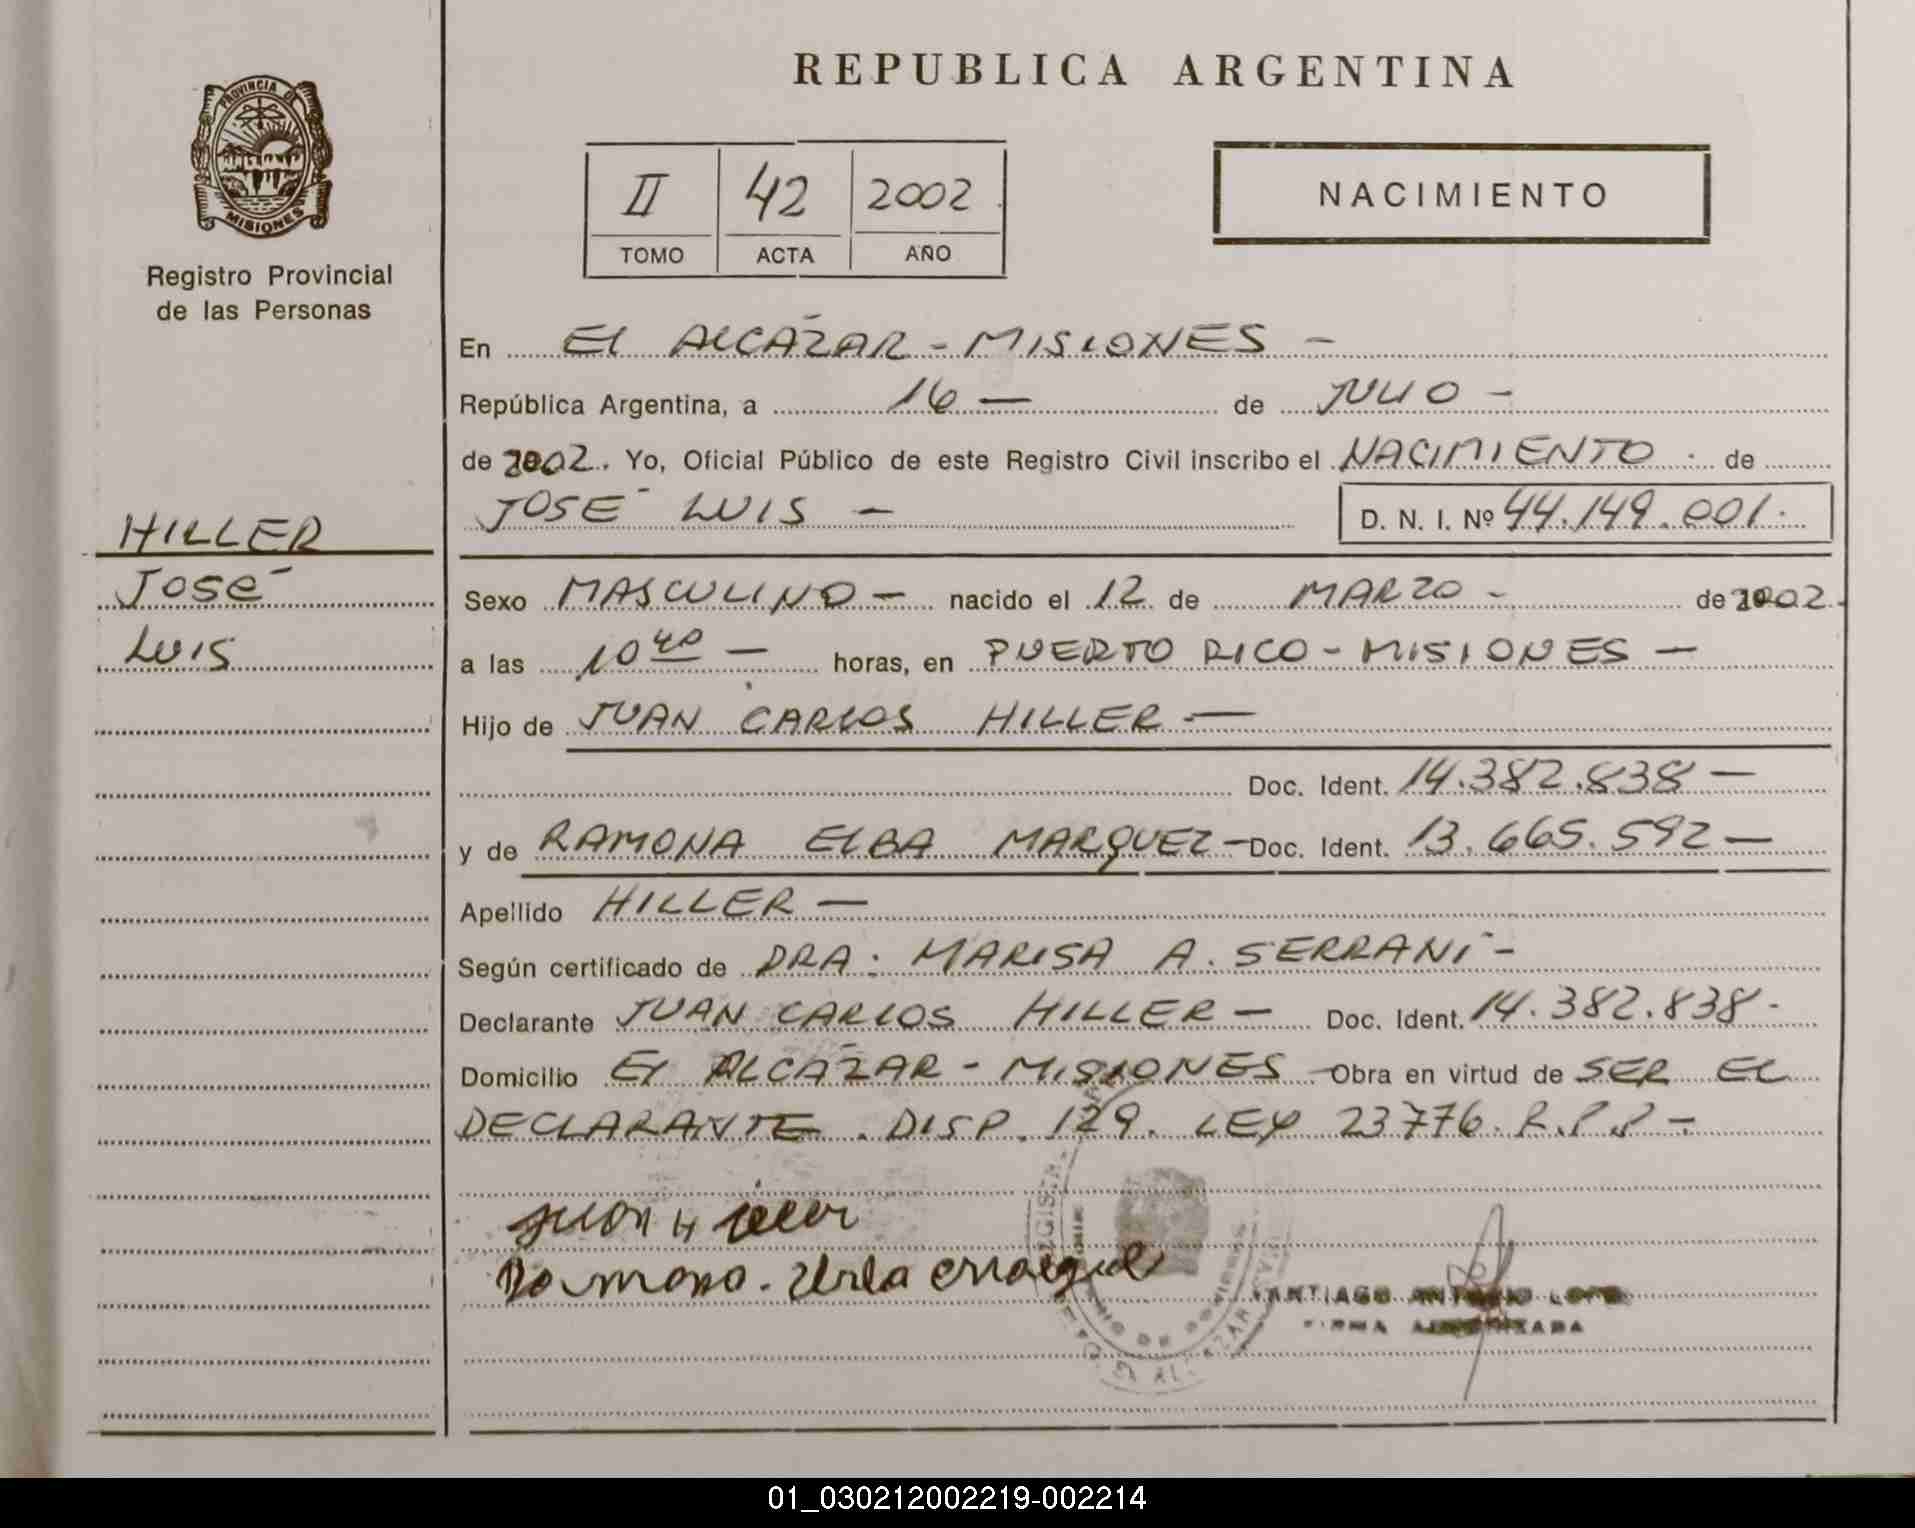 REPUBLICA ARGENTINA
PROVINCIA DE
MISIONES
Registro Provincial
de las Personas
II 42 2002
TOMO ACTA AÑO
NACIMIENTO
En EL ALCÁZAR - MISIONES -
República Argentina, a 16 - de JULIO -
de 2002. Yo, Oficial Público de este Registro Civil inscribo el NACIMIENTO de
JOSÉ LUIS - D. N. I. Nº 44.149.001.
HILLER
JOSÉ
LUIS
Sexo MASCULINO - nacido el 12 de MARZO - de 2002.
a las 10 40 - horas, en PUERTO RICO - MISIONES -
Hijo de JUAN CARLOS HILLER -
Doc. Ident. 14.382.838 -
y de RAMONA ELBA MARQUEZ - Doc. Ident. 13.665.592 -
Apellido HILLER -
Según certificado de DRA. MARISA A. SERRANI -
Declarante JUAN CARLOS HILLER - Doc. Ident. 14.382.838 -
Domicilio EL ALCÁZAR - MISIONES - Obra en virtud de SER EL
DECLARANTE. DISP. 129. LEY 23776. R.P.P -
SANTIAGO ANTONIO
FIRMA AUTORIZADA
01_030212002219-002214